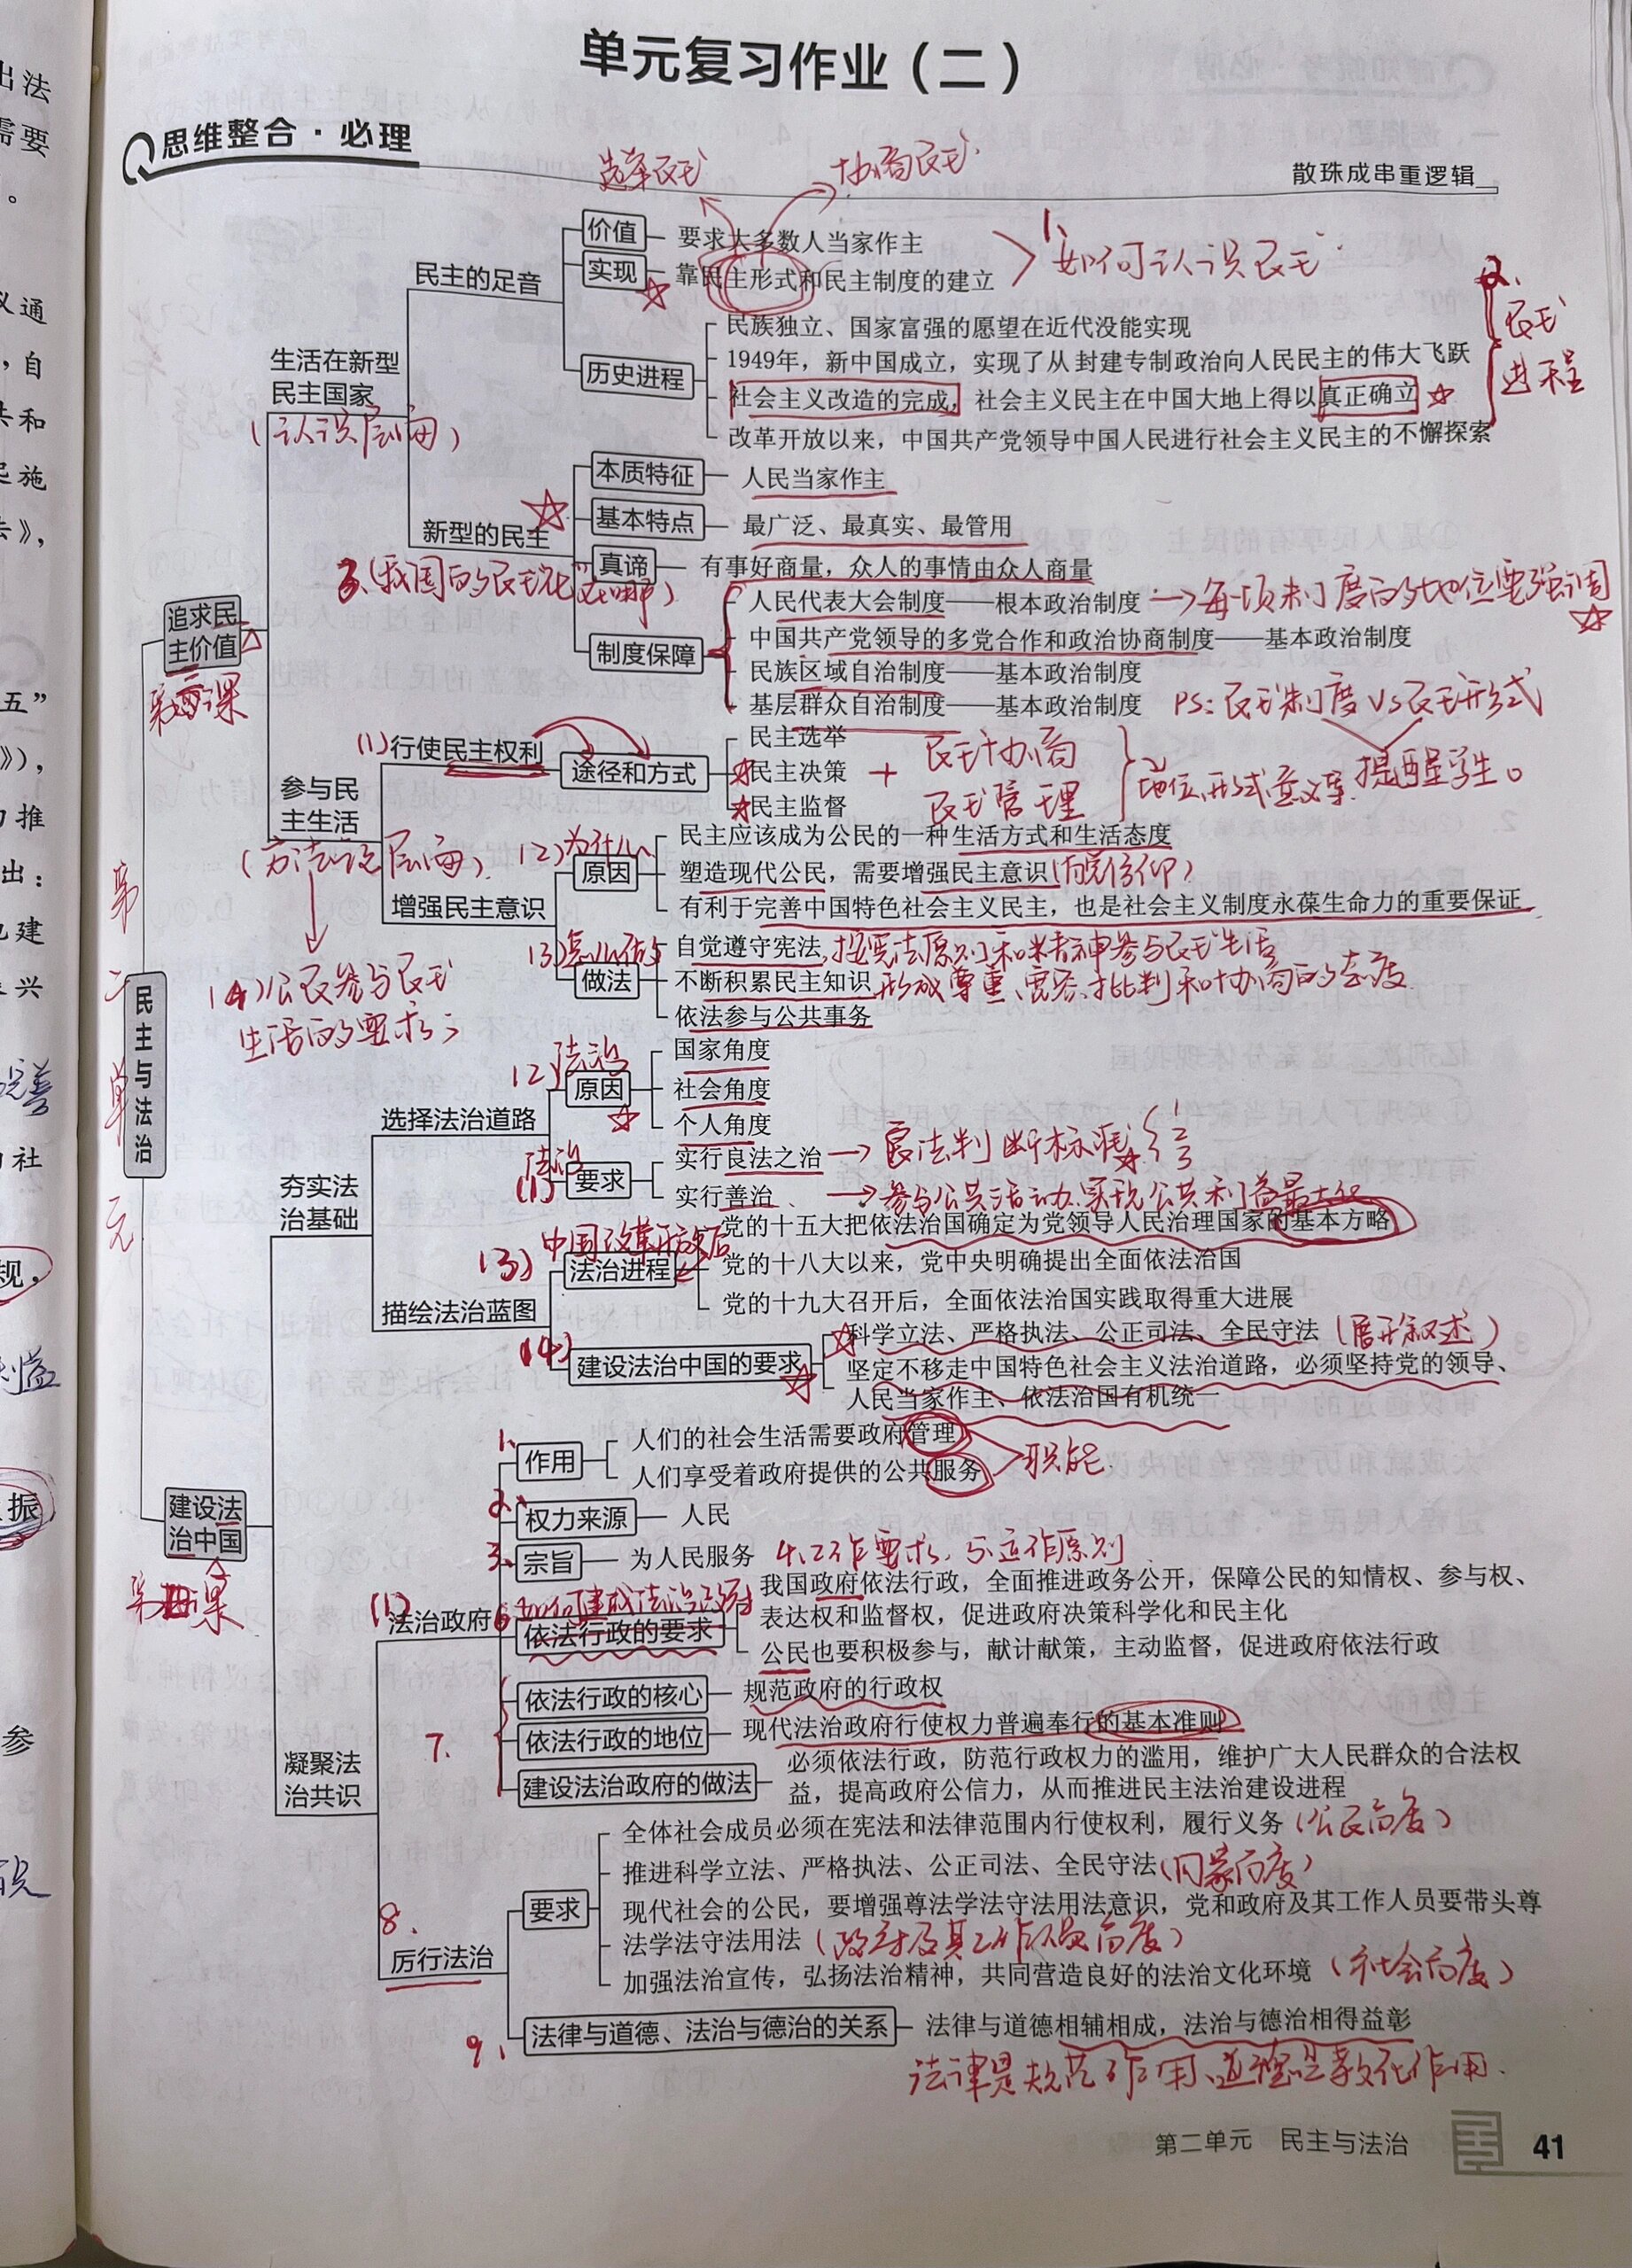 单元复习作业（二）
思维整合·必理
散珠成串重逻辑
选举民主
协商民主
价值
要求大多数人当家作主
实现
靠民主形式和民主制度的建立
1、如何认识民主
民主的足音
历史进程
民族独立、国家富强的愿望在近代没能实现
1949年，新中国成立，实现了从封建专制政治向人民民主的伟大飞跃
社会主义改造的完成，社会主义民主在中国大地上得以真正确立
改革开放以来，中国共产党领导中国人民进行社会主义民主的不懈探索
2、民主进程
生活在新型
民主国家
（认识层面）
新型的民主
本质特征
人民当家作主
基本特点
最广泛、最真实、最管用
真谛
有事好商量，众人的事情由众人商量
制度保障
人民代表大会制度——根本政治制度
→每项制度的地位要强调
中国共产党领导的多党合作和政治协商制度——基本政治制度
民族区域自治制度——基本政治制度
基层群众自治制度——基本政治制度
PS：民主制度VS民主形式
提醒学生。
追求民
主价值
参与民
主生活
（方法论层面）
(1)行使民主权利
途径和方式
民主选举
民主决策
民主监督
+
民主协商
民主管理
地位、形式、意义等
(2)为什么
增强民主意识
原因
民主应该成为公民的一种生活方式和生活态度
塑造现代公民，需要增强民主意识（内完信仰）
有利于完善中国特色社会主义民主，也是社会主义制度永葆生命力的重要保证
(3)怎么做
做法
自觉遵守宪法，按宪法原则和精神参与民主生活
不断积累民主知识，形成尊重、宽容、批判和协商的态度
依法参与公共事务
(4)公民参与民主
生活的要求；
第二单元
民主与法治
夯实法
治基础
选择法治道路
(2)法治
原因
国家角度
社会角度
个人角度
法治
(1)
要求
实行良法之治
→良法判断标准 1 2 3
实行善治
→参与公共活动、实现公共利益最大化
描绘法治蓝图
(3)中国改革开放后
法治进程
党的十五大把依法治国确定为党领导人民治理国家的基本方略
党的十八大以来，党中央明确提出全面依法治国
党的十九大召开后，全面依法治国实践取得重大进展
(4)
建设法治中国的要求
科学立法、严格执法、公正司法、全民守法（展开叙述）
坚定不移走中国特色社会主义法治道路，必须坚持党的领导、
人民当家作主、依法治国有机统一
建设法
治中国
凝聚法
治共识
(1)
法治政府
1、
作用
人们的社会生活需要政府管理
人们享受着政府提供的公共服务
职能
2、
权力来源
人民
3、
宗旨
为人民服务
4、工作要求、5、运作原则
6、如何建成法治政府
依法行政的要求
我国政府依法行政，全面推进政务公开，保障公民的知情权、参与权、
表达权和监督权，促进政府决策科学化和民主化
公民也要积极参与，献计献策，主动监督，促进政府依法行政
7.
依法行政的核心
规范政府的行政权
依法行政的地位
现代法治政府行使权力普遍奉行的基本准则
建设法治政府的做法
必须依法行政，防范行政权力的滥用，维护广大人民群众的合法权
益，提高政府公信力，从而推进民主法治建设进程
8.
厉行法治
要求
全体社会成员必须在宪法和法律范围内行使权利，履行义务（公民角度）
推进科学立法、严格执法、公正司法、全民守法（国家角度）
现代社会的公民，要增强尊法学法守法用法意识，党和政府及其工作人员要带头尊
法学法守法用法（政府及其工作人员角度）
加强法治宣传，弘扬法治精神，共同营造良好的法治文化环境（社会角度）
9、
法律与道德、法治与德治的关系
法律与道德相辅相成，法治与德治相得益彰
法律是规范作用、道德是教化作用.
第二单元 民主与法治
41